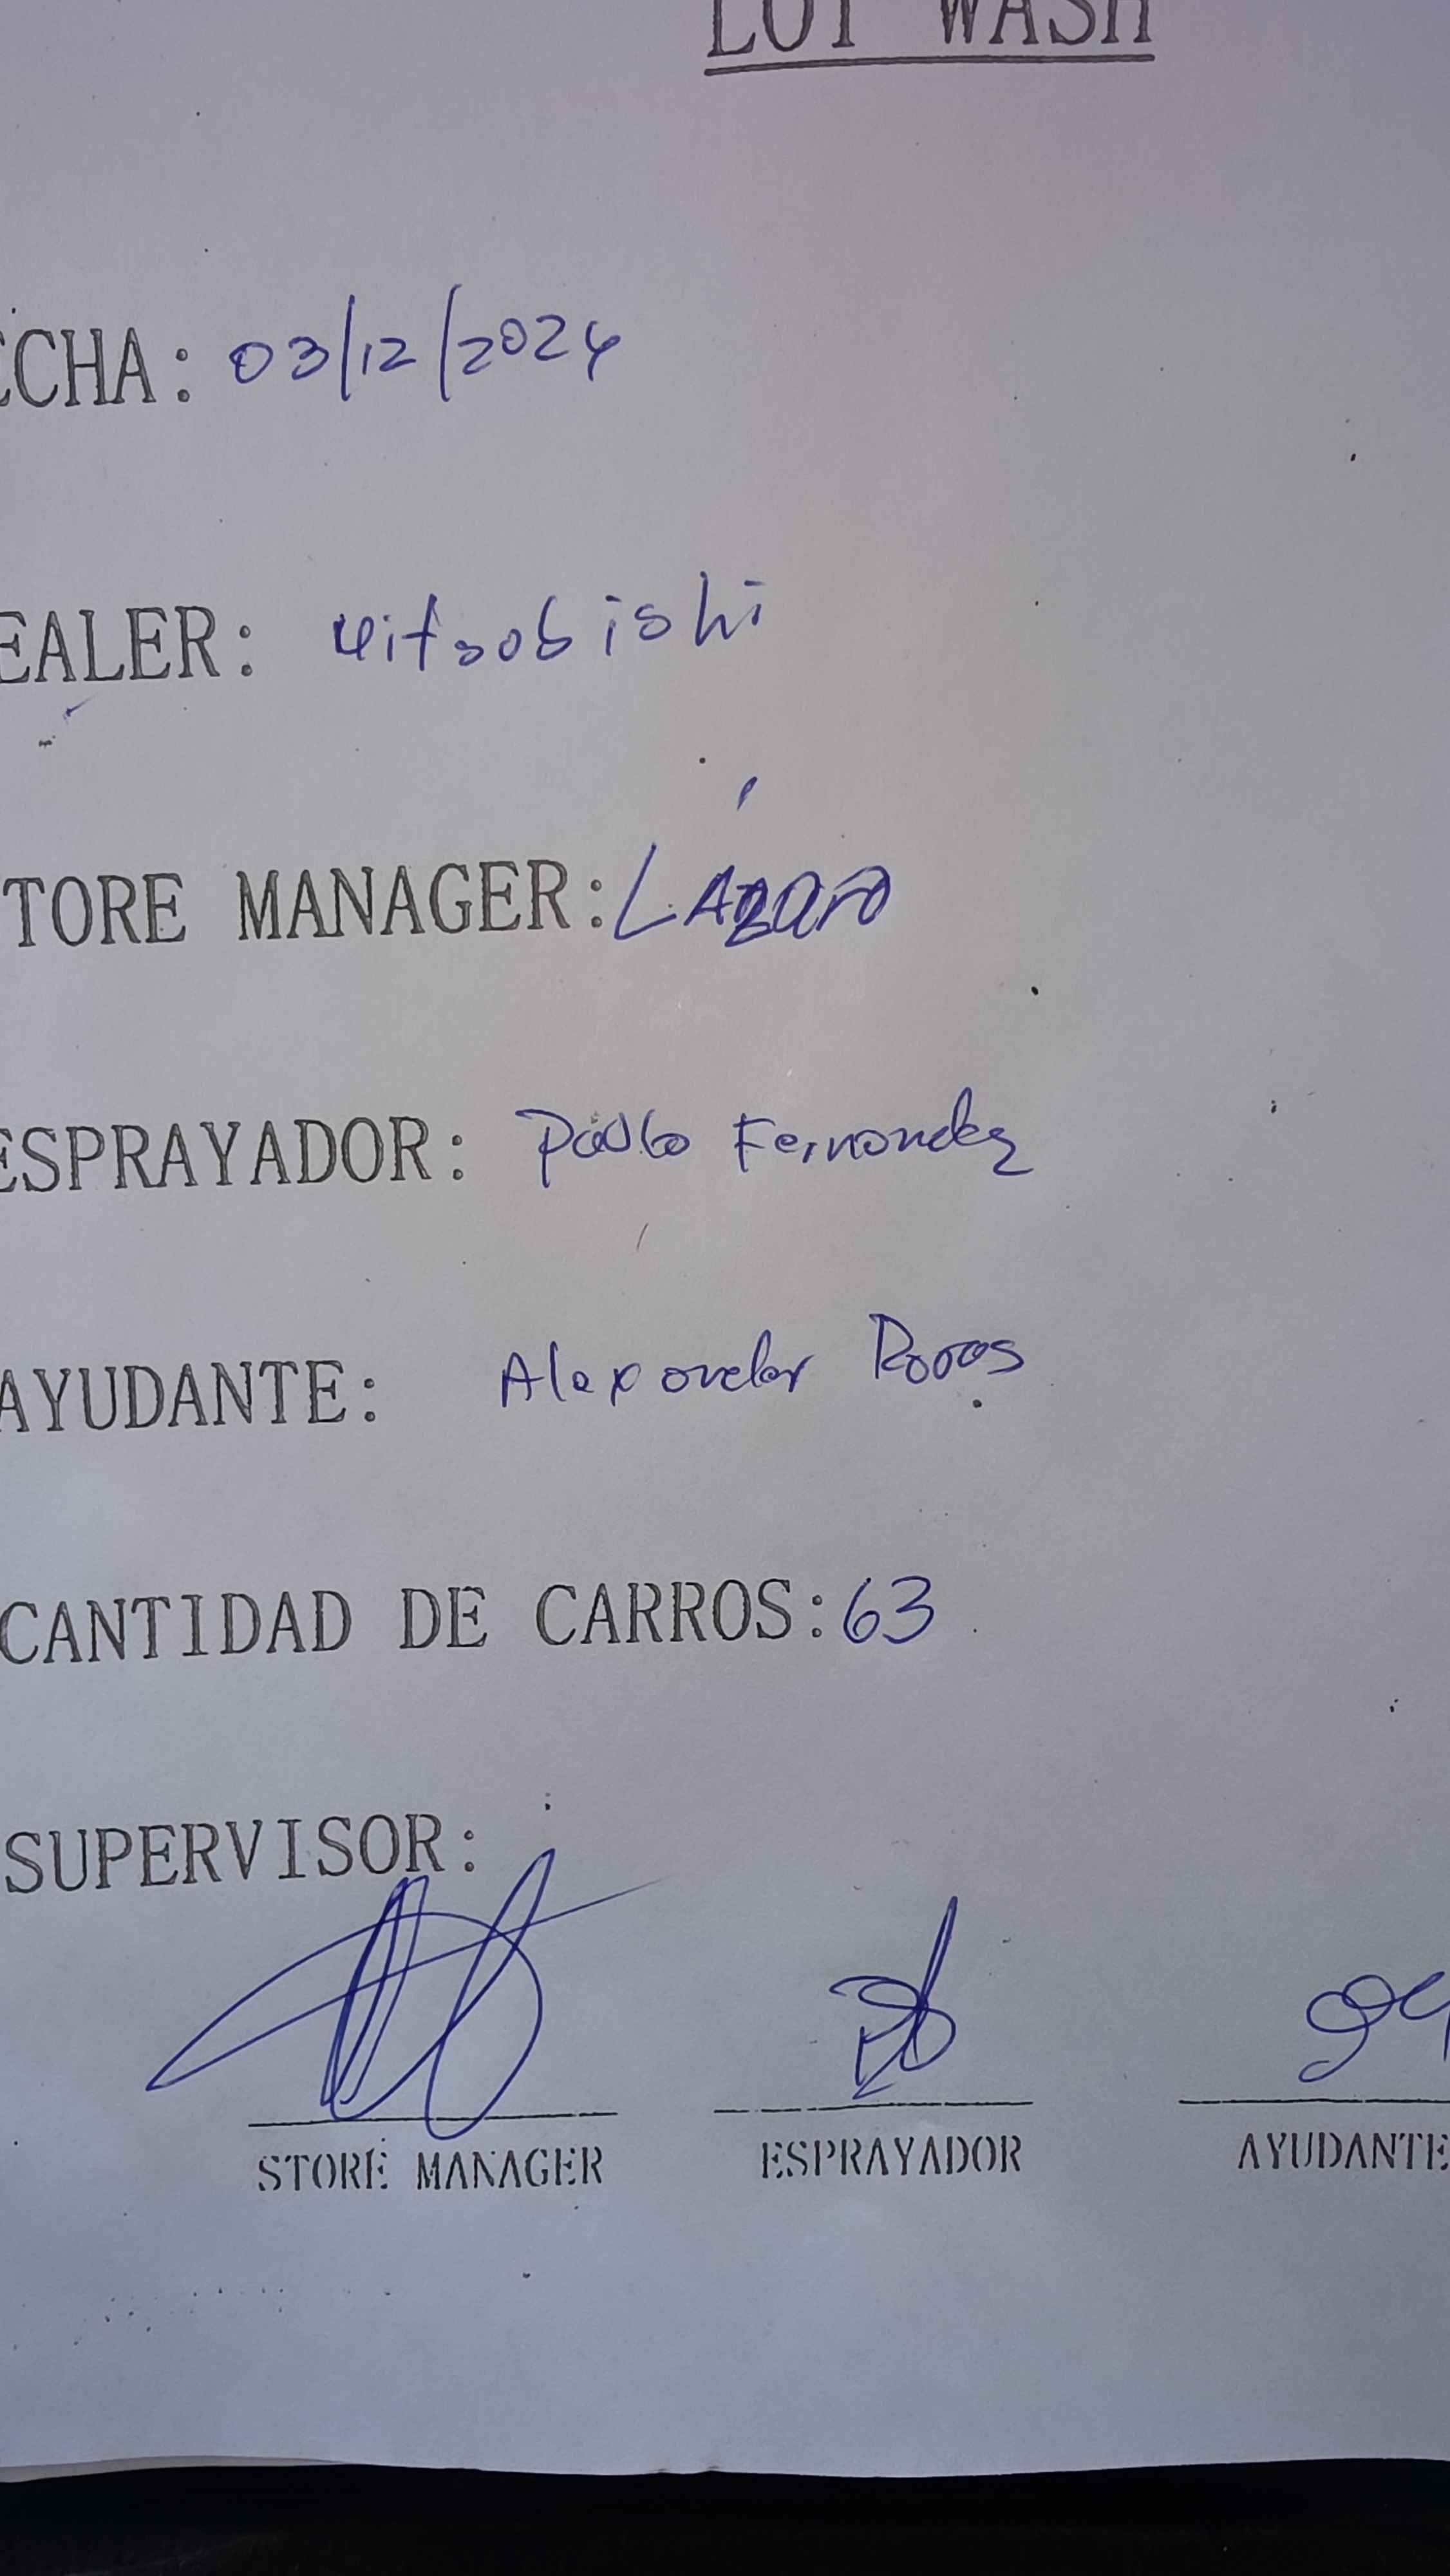 LOT WASH
ECHA: 03/12/2024
EALER: Mitsobishi
TORE MANAGER: LÁzaro
ESPRAYADOR: Pablo Fernandez
AYUDANTE: Alexander
CANTIDAD DE CARROS: 63
SUPERVISOR:
STORE MANAGER ESPRAYADOR AYUDANTE